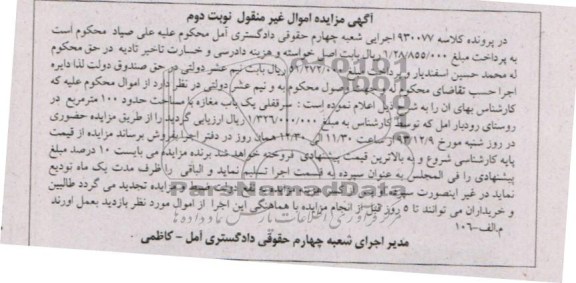 آگهی مزایده اموال غیر منقول نوبت دوم
در پرونده کلاسه ۹۳۰۰۷۷ اجرایی شعبه چهارم حقوقی دادگستری آمل محکوم علیه علی صیاد محکوم است
به پرداخت مبلغ ۱/۰۲۸/۸۵۵/۰۰۰ ریال بابت اصل خواسته و هزینه دادرسی و خسارت تاخیر تادیه در حق محکوم
له محمد حسین اسفندیار و پرداخت مبلغ ریال بابت نیم عشر دولتی در حق صندوق دولت لذا دایره
اجرا حسب تقاضای محکوم وصول محکوم به و نیم عشر دولتی در نظر دارد از اموال محکوم علیه که
کارشناس بهای آن را به ذیل اعلام نموده است : سرقفلی یک باب مغازه با مساحت حدود ۱۰۰ مترمربع در
روستای رودبار امل که توسط کارشناس به مبلغ ۱/۳۲۶/۰۰۰/۰۰۰ ریال ارزیابی گردید را از طریق مزایده حضوری
در روز شنبه مورخ ۹۳/۱۲/۹ از ساعت ۱۱/۳۰ الی ۱۲/۳۰ همان روز در دفتر اجرا بفروش برساند مزایده از قیمت
پایه کارشناسی شروع و به بالاترین قیمت پیشنهادی فروخته خواهد شد برنده مزایده می بایست ۱۰ درصد مبلغ
پیشنهادی را فی المجلس به عنوان سپرده به قسمت اجرا تسلیم نماید و الباقی را ظرف مدت یک ماه تودیع
نماید در غیر اینصورت سپرده دولت و مزایده تجدید می گردد طالبین
و خریداران می توانند تا ۵ روز قبل از انجام مزایده با هماهنگی این اجرا از اموال مورد نظر بازدید بعمل اورند
م.الف-۱۰۶
مدیر اجرای شعبه چهارم حقوقی دادگستری آمل - کاظمی
ParsNamadData